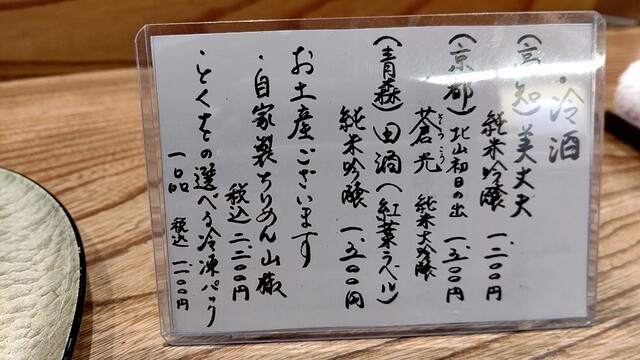 ・冷酒
（高知）美丈夫
純米吟醸 一、二〇〇円
（京都）北山初日の出
そうこう
蒼光 純米大吟醸 一、五〇〇円
（青森）田酒（紅葉ラベル）
純米吟醸 一、五〇〇円
お土産ございます
・自家製ちりめん山椒
税込 二、二〇〇円
・とくをの選べる冷凍パック
一品 税込 一、一〇〇円